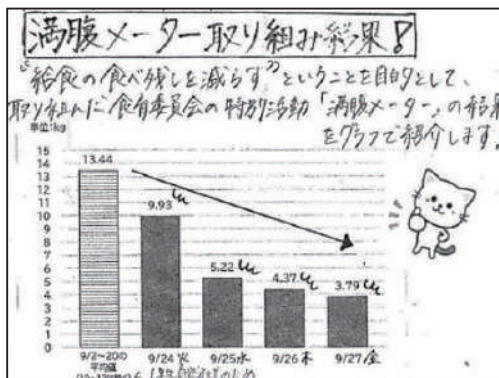 満腹メーター取り組み結果！
"給食の食べ残しを減らす"ということを目的として、
取り組んだ食育委員会の特別活動「満腹メーター」の結果
をグラフで紹介します。
単位:kg
15
14
13
12
11
10
9
8
7
6
5
4
3
2
1
0
13.44
9.93
5.22
4.37
3.79
9/2～20の
平均値
9/24 火
9/25 水
9/26 木
9/27 金